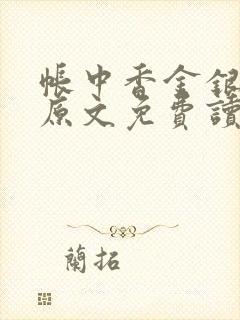 帳中香金銀
原文免費讀
蘭拓